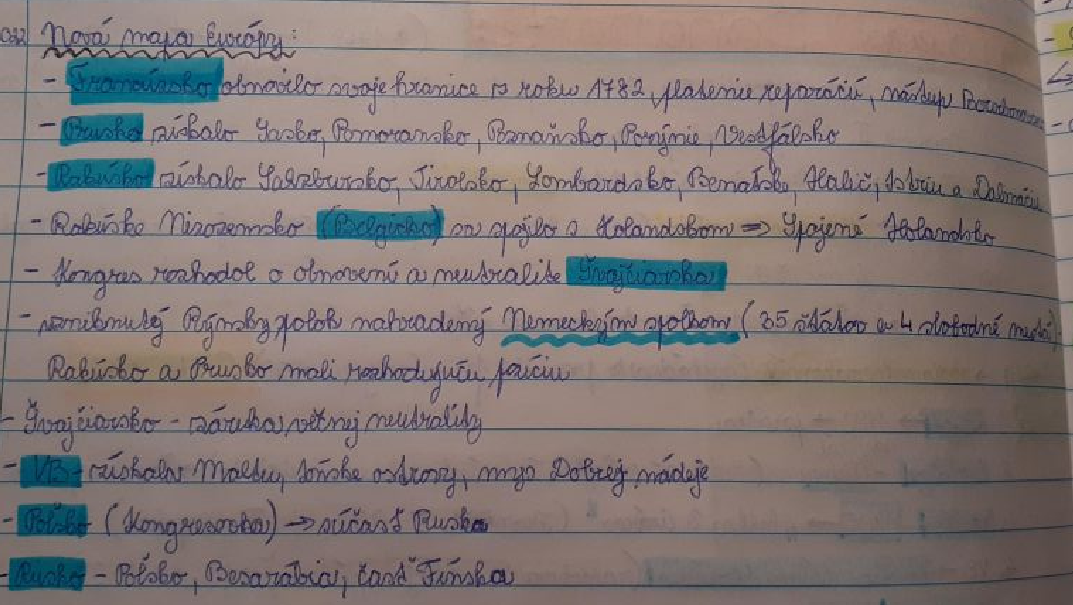 Nová mapa Európy:
- Francúzsko obnovilo svoje hranice z roku 1782, platenie reparácií, nástup Bourbonov
- Prusko získalo Sasko, Pomoransko, Poznaňsko, Porýnie, Vestfálsko
- Rakúsko získalo Salzbursko, Tirolsko, Lombardsko, Benátsko, Halič, Istriu a Dalmáciu
- Rakúske Nizozemsko (Belgicko) sa spojilo s Holandskom => Spojené Holandsko
- Kongres rozhodol o obnovení a neutralite Švajčiarska
- vzniknutý Rýnsky spolok nahradený Nemeckým spolkom (35 štátov a 4 slobodné mestá)
Rakúsko a Prusko mali rozhodujúcu pozíciu
- Švajčiarsko - záruka večnej neutrality
- VB - získala Maltu, Iónske ostrovy, mys Dobrej nádeje
- Poľsko (Kongresovka) → súčasť Ruska
- Rusko - Poľsko, Besarábia, časť Fínska